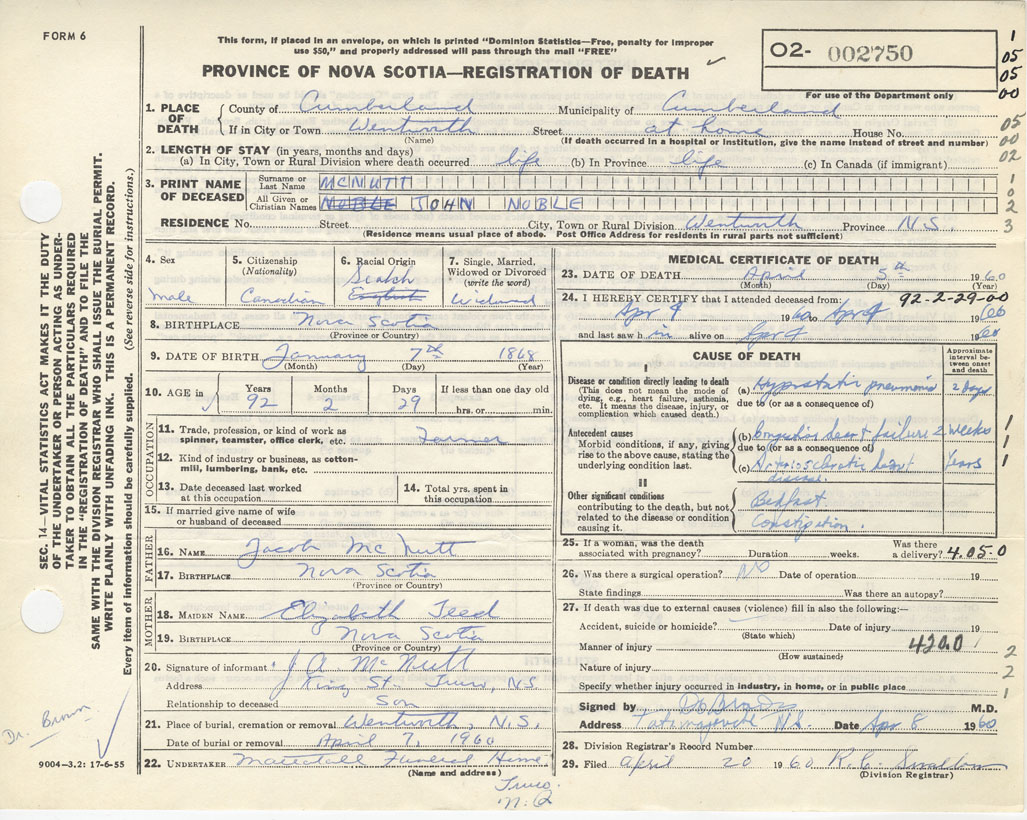 FORM 6
This form, if placed in an envelope, on which is printed "Dominion Statistics—Free, penalty for improper
use $50," and properly addressed will pass through the mail "FREE"
PROVINCE OF NOVA SCOTIA—REGISTRATION OF DEATH
O2- 002750
For use of the Department only
1
05
05
00
1. PLACE OF DEATH County of Cumberland Municipality of Cumberland
If in City or Town Wentworth Street at home House No. 05
(Name) (If death occurred in a hospital or institution, give the name instead of street and number) 00
2. LENGTH OF STAY (in years, months and days) 02
(a) In City, Town or Rural Division where death occurred life (b) In Province life (c) In Canada (if immigrant)
3. PRINT NAME OF DECEASED Surname or Last Name MCNUTT 1
0
All Given or Christian Names NOBLE JOHN NOBLE 2
RESIDENCE No. Street City, Town or Rural Division Wentworth Province N.S. 3
(Residence means usual place of abode. Post Office Address for residents in rural parts not sufficient)
4. Sex
male
5. Citizenship
(Nationality)
Canadian
6. Racial Origin
Scotch
English
7. Single, Married,
Widowed or Divorced
(write the word)
Widowed
8. BIRTHPLACE Nova Scotia
(Province or Country)
9. DATE OF BIRTH January 7th 1868
(Month) (Day) (Year)
10. AGE in Years Months Days If less than one day old
92 2 29 hrs. or min.
OCCUPATION
11. Trade, profession, or kind of work as
spinner, teamster, office clerk, etc. Farmer
12. Kind of industry or business, as cotton-
mill, lumbering, bank, etc.
13. Date deceased last worked
at this occupation
14. Total yrs. spent in
this occupation
15. If married give name of wife
or husband of deceased
FATHER
16. NAME Jacob McNutt
17. BIRTHPLACE Nova Scotia
(Province or Country)
MOTHER
18. MAIDEN NAME Elizabeth Teed
19. BIRTHPLACE Nova Scotia
(Province or Country)
20. Signature of informant J A. McNutt
Address King St. Truro, N.S.
Relationship to deceased Son
21. Place of burial, cremation or removal Wentworth, N.S.
Date of burial or removal April 7, 1960
22. UNDERTAKER Mattatall Funeral Home
(Name and address)
Truro.
N.S
MEDICAL CERTIFICATE OF DEATH
23. DATE OF DEATH April 5th 1960
(Month) (Day) (Year)
24. I HEREBY CERTIFY that I attended deceased from: 92-2-29-00
Apr 4 1960 to Apr 4 1960
and last saw h im alive on Apr 4 1960
CAUSE OF DEATH
Approximate
interval be-
tween onset
and death
I
Disease or condition directly leading to death
(This does not mean the mode of
dying, e.g., heart failure, asthenia,
etc. It means the disease, injury, or
complication which caused death.)
(a) Hypostatic pneumonia 2 days
due to (or as a consequence of)
Antecedent causes
Morbid conditions, if any, giving
rise to the above cause, stating the
underlying condition last.
(b) Congestive heart failure 2 weeks
due to (or as a consequence of)
(c) Arteriosclerotic heart Years
disease.
1
1
1
II
Other significant conditions
contributing to the death, but not
related to the disease or condition
causing it.
Bedfast.
Constipation.
25. If a woman, was the death
associated with pregnancy? Duration weeks. Was there
a delivery? 4.05.0
26. Was there a surgical operation? NO Date of operation 19
State findings Was there an autopsy?
27. If death was due to external causes (violence) fill in also the following:—
Accident, suicide or homicide? Date of injury 19
(State which)
Manner of injury 420.0
(How sustained)
2
Nature of injury 2
Specify whether injury occurred in industry, in home, or in public place 1
Signed by M.D.
Address Tatamagouche N.S. Date Apr 8 1960
28. Division Registrar's Record Number
29. Filed April 20 1960 R. C.
(Division Registrar)
SEC. 14—VITAL STATISTICS ACT MAKES IT THE DUTY
OF THE UNDERTAKER OR PERSON ACTING AS UNDER-
TAKER TO OBTAIN ALL THE PARTICULARS REQUIRED
IN THE "REGISTRATION OF DEATH" AND TO FILE THE
SAME WITH THE DIVISION REGISTRAR WHO SHALL ISSUE THE BURIAL PERMIT.
WRITE PLAINLY WITH UNFADING INK. THIS IS A PERMANENT RECORD.
Every item of information should be carefully supplied. (See reverse side for instructions.)
Dr. Brown
9004-3.2: 17-6-55